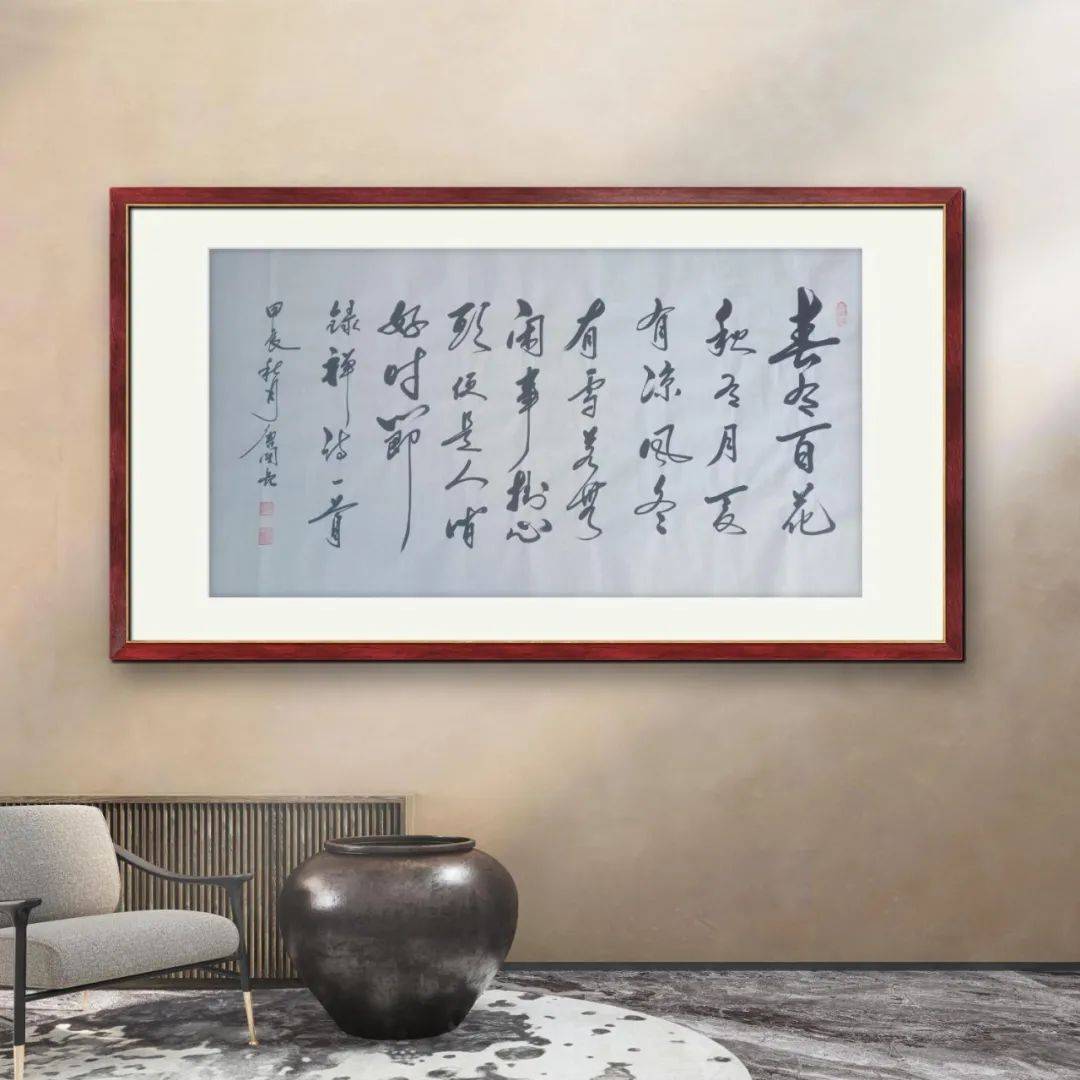 春有百花
秋有月夏
有凉风冬
有雪若無
闲事掛心
头便是人间
好时节
録禅诗一首
甲辰秋月